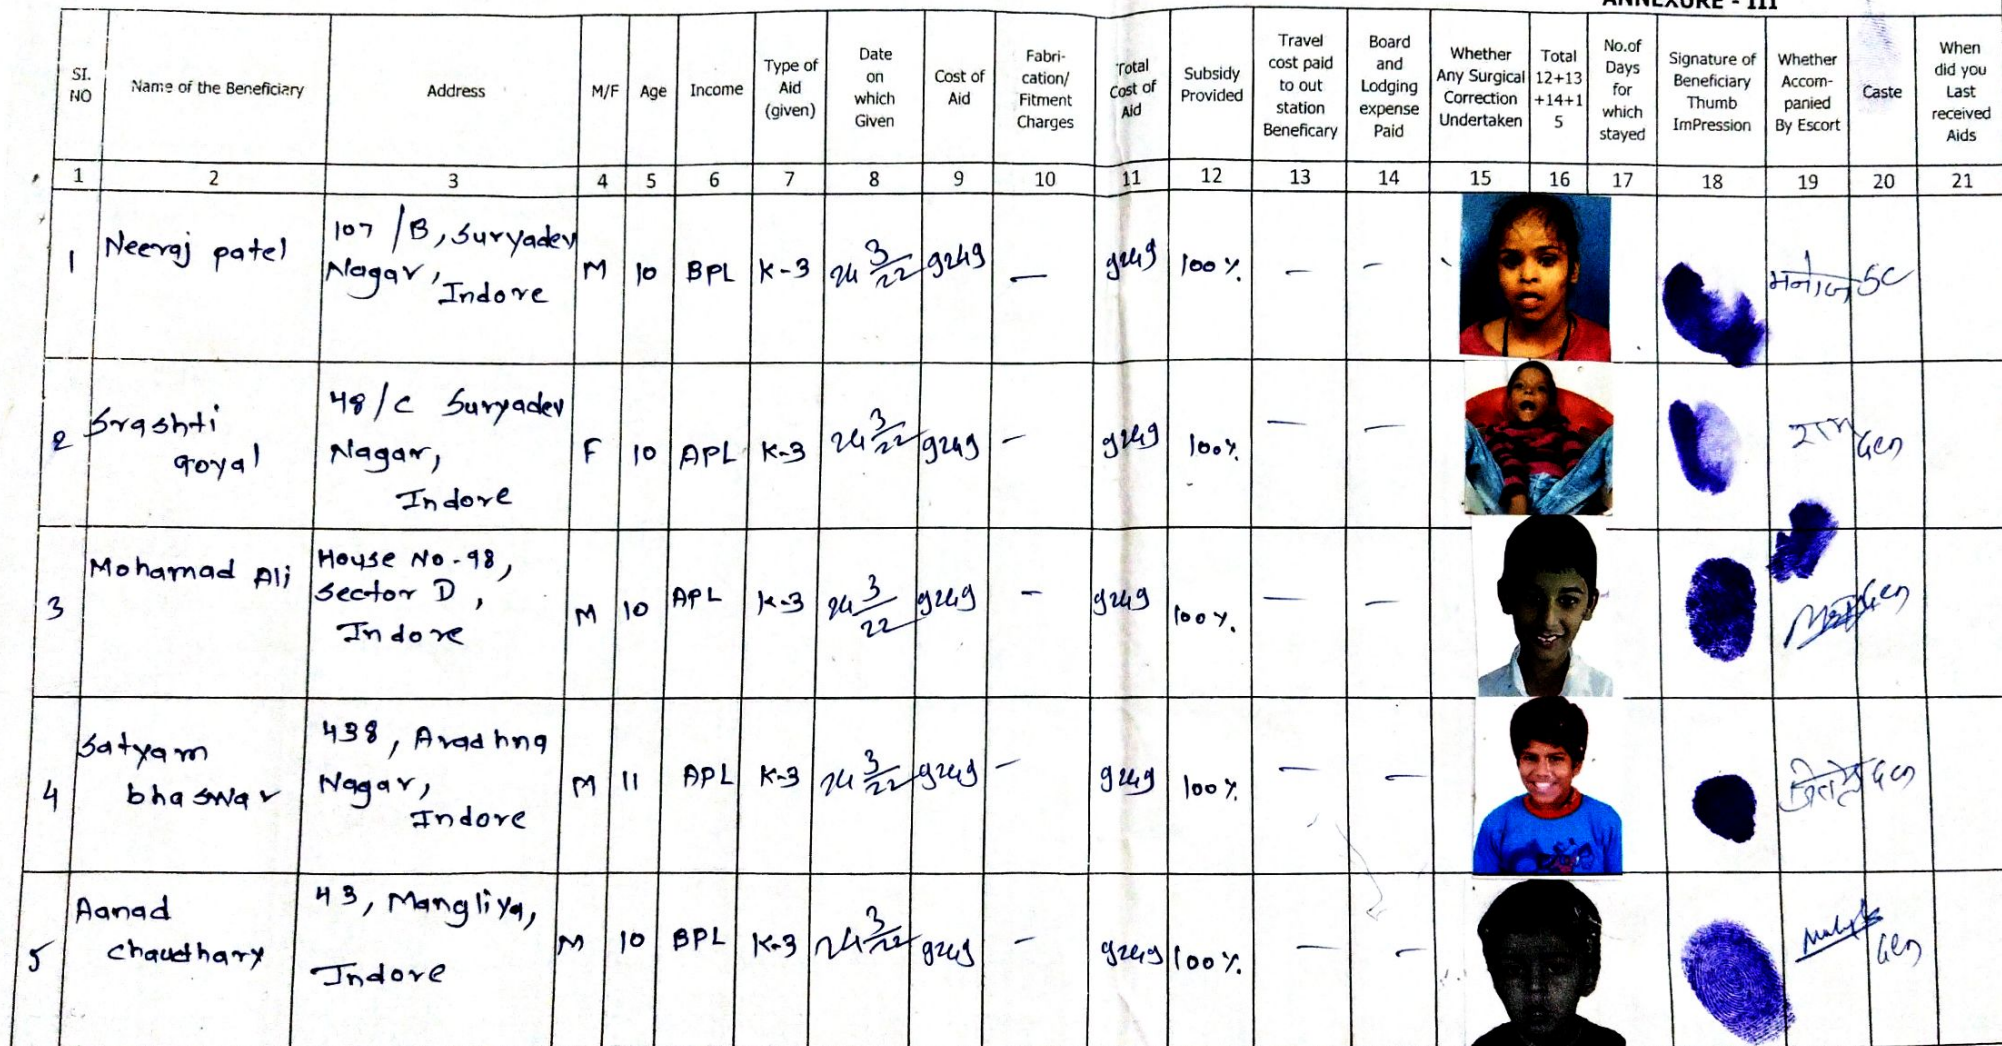 ANNEXURE - III
SI. NO
Name of the Beneficiary
Address
M/F
Age
Income
Type of Aid (given)
Date on which Given
Cost of Aid
Fabri-cation/ Fitment Charges
Total Cost of Aid
Subsidy Provided
Travel cost paid to out station Beneficary
Board and Lodging expense Paid
Whether Any Surgical Correction Undertaken
Total 12+13+14+15
No.of Days for which stayed
Signature of Beneficiary Thumb ImPression
Whether Accom-panied By Escort
Caste
When did you Last received Aids
1 2 3 4 5 6 7 8 9 10 11 12 13 14 15 16 17 18 19 20 21
1 Neeraj patel
107 /B, Suryadev
Nagar,
Indore
M 10 BPL K-3 24 3/22 9249 — 9249 100 % — — मनोज SC
2 Srashti
goyal
48/C Suryadev
Nagar,
Indore
F 10 APL K-3 24 3/22 9249 — 9249 100% — — राम Gen
3 Mohamad Ali
House No-98,
Sector D,
Indore
M 10 APL K-3 24 3/22 9249 — 9249 100 %. — — Gen
4 Satyam
bhaswar
438, Aradhna
Nagar,
Indore
M 11 APL K-3 24 3/22 9249 — 9249 100 % — — Gen
5 Aanad
chaudhary
43, Mangliya,
Indore
M 10 BPL K-3 24 3/22 9249 — 9249 100 %. — — Gen